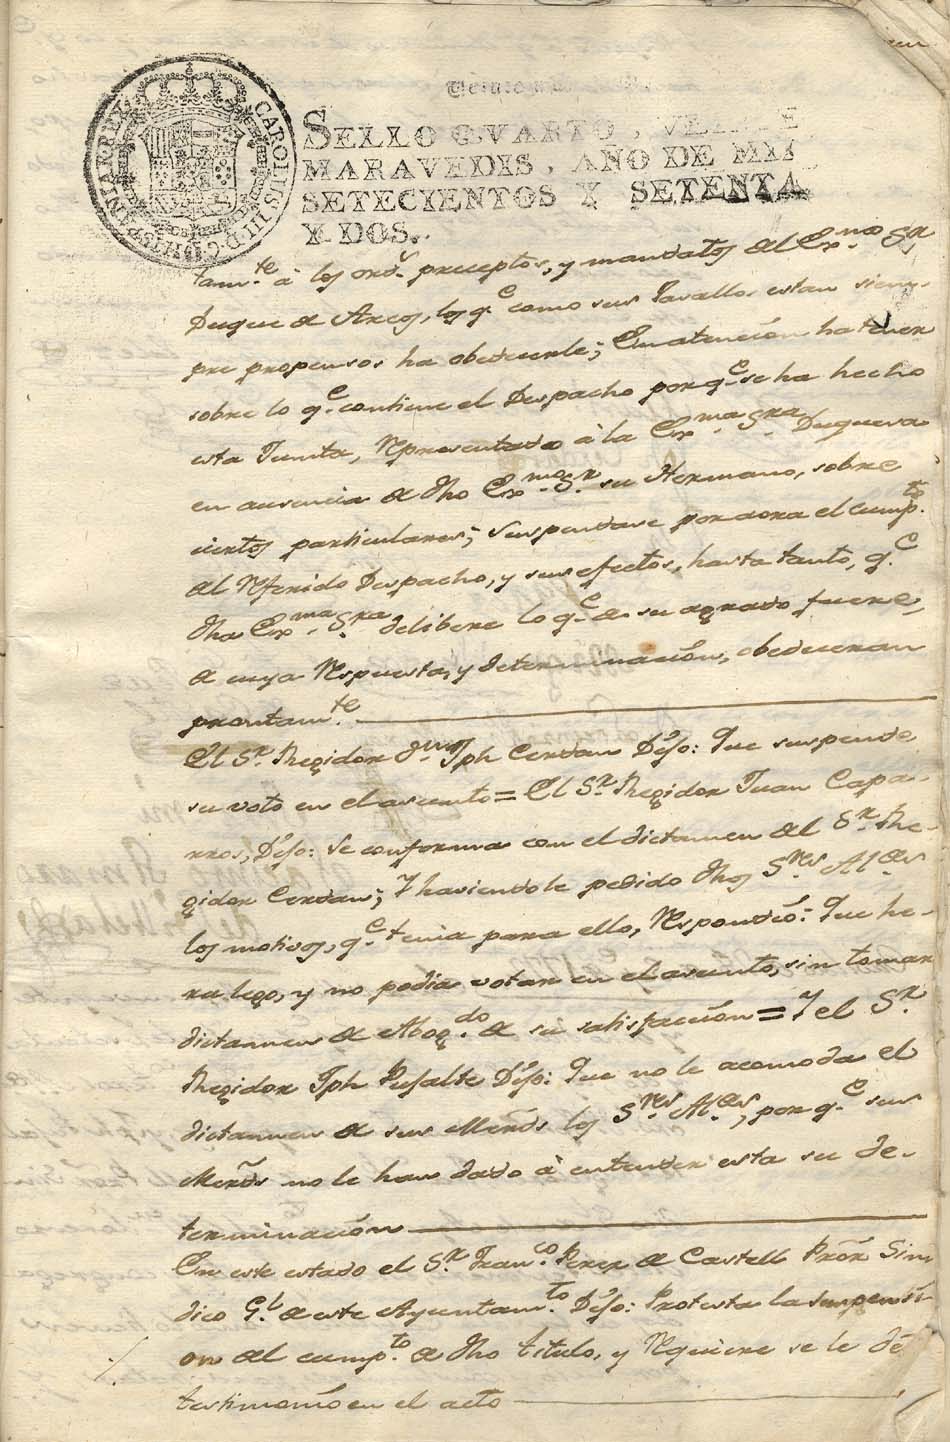 CAROLUS III D G HISPANIAR REX
SELLO QVARTO, VEINTE
MARAVEDIS, AÑO DE MIL
SETECIENTOS Y SETENTA
Y DOS.
tam.te à los ord.s preceptos, y mandatos del Ex.mo S.r
Duque de Arcos, los q.e como sus Vasallos estan siem-
pre propensos ha obedecerle; En atencion ha tener
sobre lo q.e contiene el Despacho porq.e se ha hecho
esta Junta, Representado à la Ex.ma S.ra Duquesa
en ausencia de dho Ex.mo S.r su Hermano, sobre
ciertos particulares; Suspendase por aora el cump.to
del Referido Despacho, y sus efectos, hasta tanto, q.e
dha Ex.ma S.ra delibere lo q.e de su agrado fuere,
a cuya Respuesta, y determinacion, obedeceran
prontam.te
El S.r Regidor d.n Jph Cerdan Dijo: Que suspende
su voto en el asunto = El S.r Regidor Juan Capa-
rros, Dijo: Se conforma con el dictamen del S.r Re-
gidor Cerdan; Y haviendole pedido dhos S.res Al.des
los motivos, q.e tenia para ello, Respondió: Que he-
ra lego, y no podia votar en el asunto, sin tomar
dictamen de Abog.do de su satisfaccion = Y el S.r
Regidor Jph Pusalte Dijo: Que no le acomoda el
dictamen de sus Merds los S.res Al.des, por q.e sus
Merds no le han dado à entender esta su de-
terminacion
En este estado el S.r Fran.co Perez de Castell Pror Sin-
dico G.l de este Ayuntam.to Dijo: Protesta la suspensi-
on del cump.to de dho titulo, y Requiere se le dé
testimonio en el acto